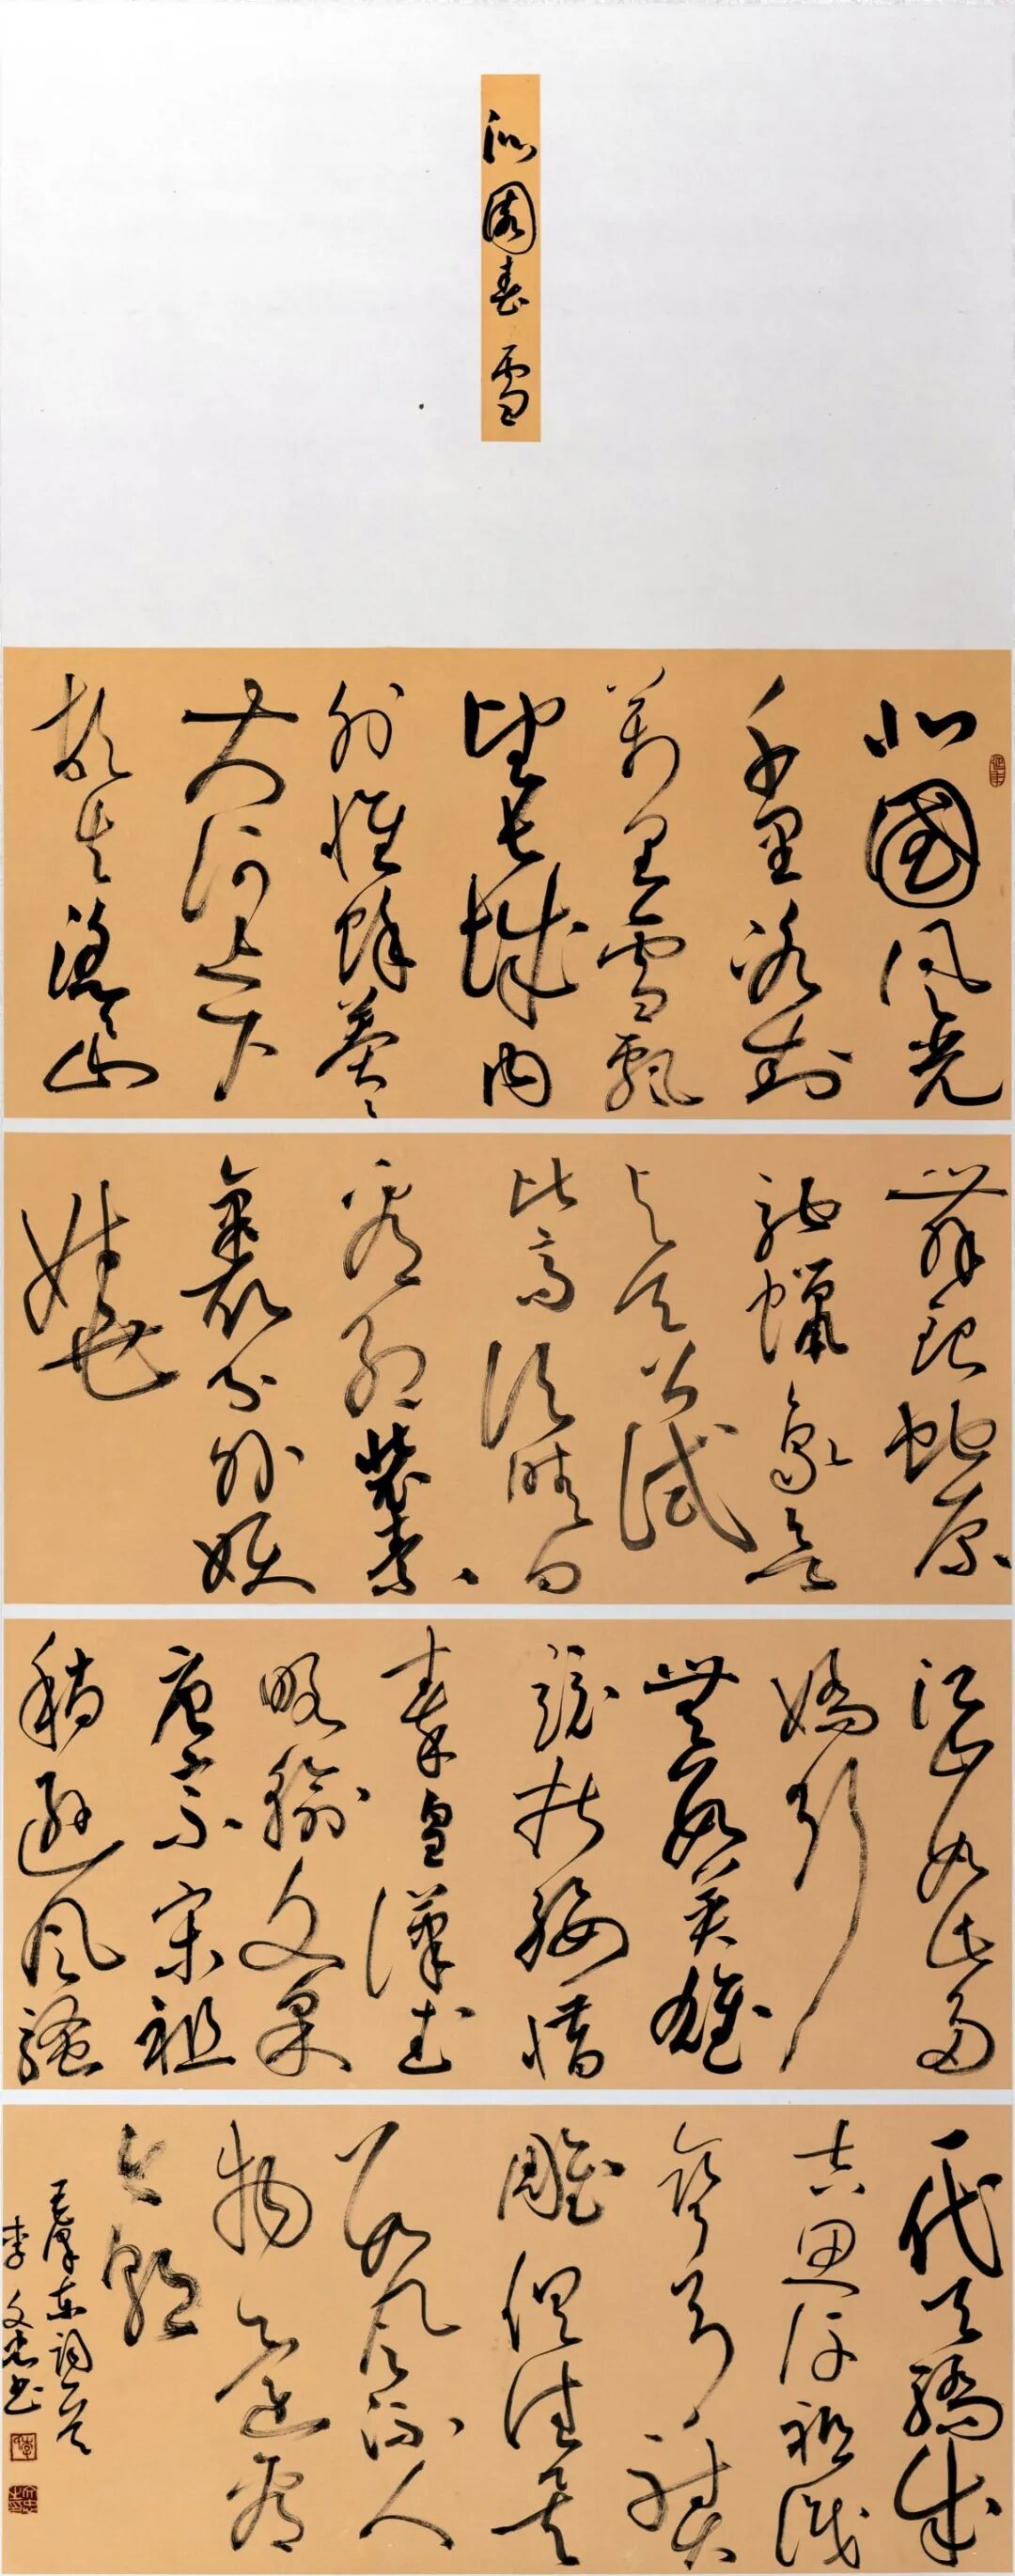 沁園春 雪
北國風光
千里冰封
萬里雪飄
望長城內
外惟餘莽々
大河上下
頓失滔々山
舞銀蛇原
馳蠟象欲
與天公試
比高須晴日
看紅裝素
裹分外妖
嬈
江山如此多
嬌引
無數英雄
競折腰惜
秦皇漢武
略輸文采
唐宗宋祖
稍遜風騷
一代天驕成
吉思汗祇識
彎弓射
雕俱往矣
數風流人
物還看
今朝
毛澤東詞一首
李文忠書